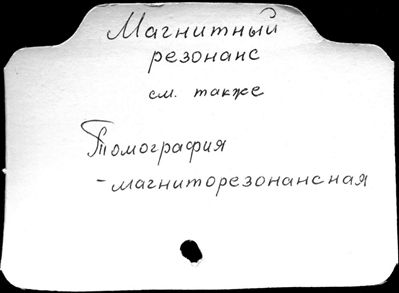 Магнитный
резонанс
см. также
Томография
-магниторезонансная